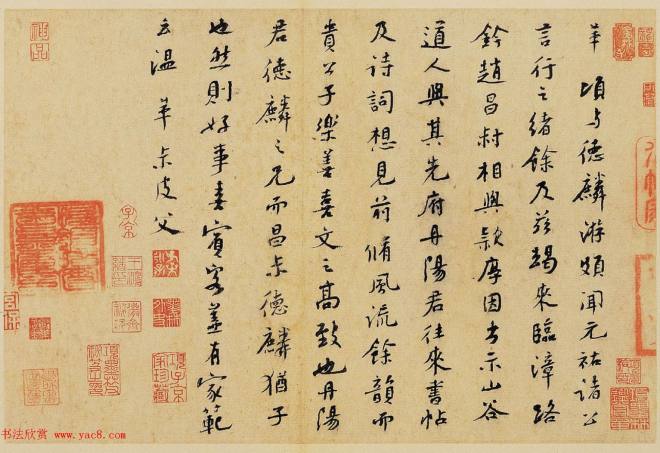 華 頃与德麟游頗聞元祐諸公
言行之緒餘及茲朅來臨漳路
鈐趙昌 相與款 因出示山谷
道人與其先府丹陽君往來書帖
及詩詞想見前脩風流餘韻而
貴公子樂善喜文之高致也丹陽
君德麟之兄而昌 德麟猶子
也然則好事 賓客蓋有家範
云溫 革 皮父
书法欣赏 www.yac8.com